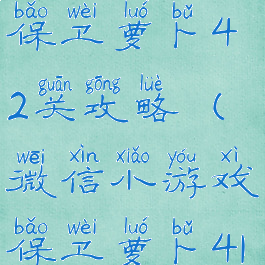 bǎo wèi luó bǔ
保卫萝卜4
guān gōng lüè
2关攻略(
wēi xìn xiǎo yóu xì
微信小游戏
bǎo wèi luó bǔ
保卫萝卜41